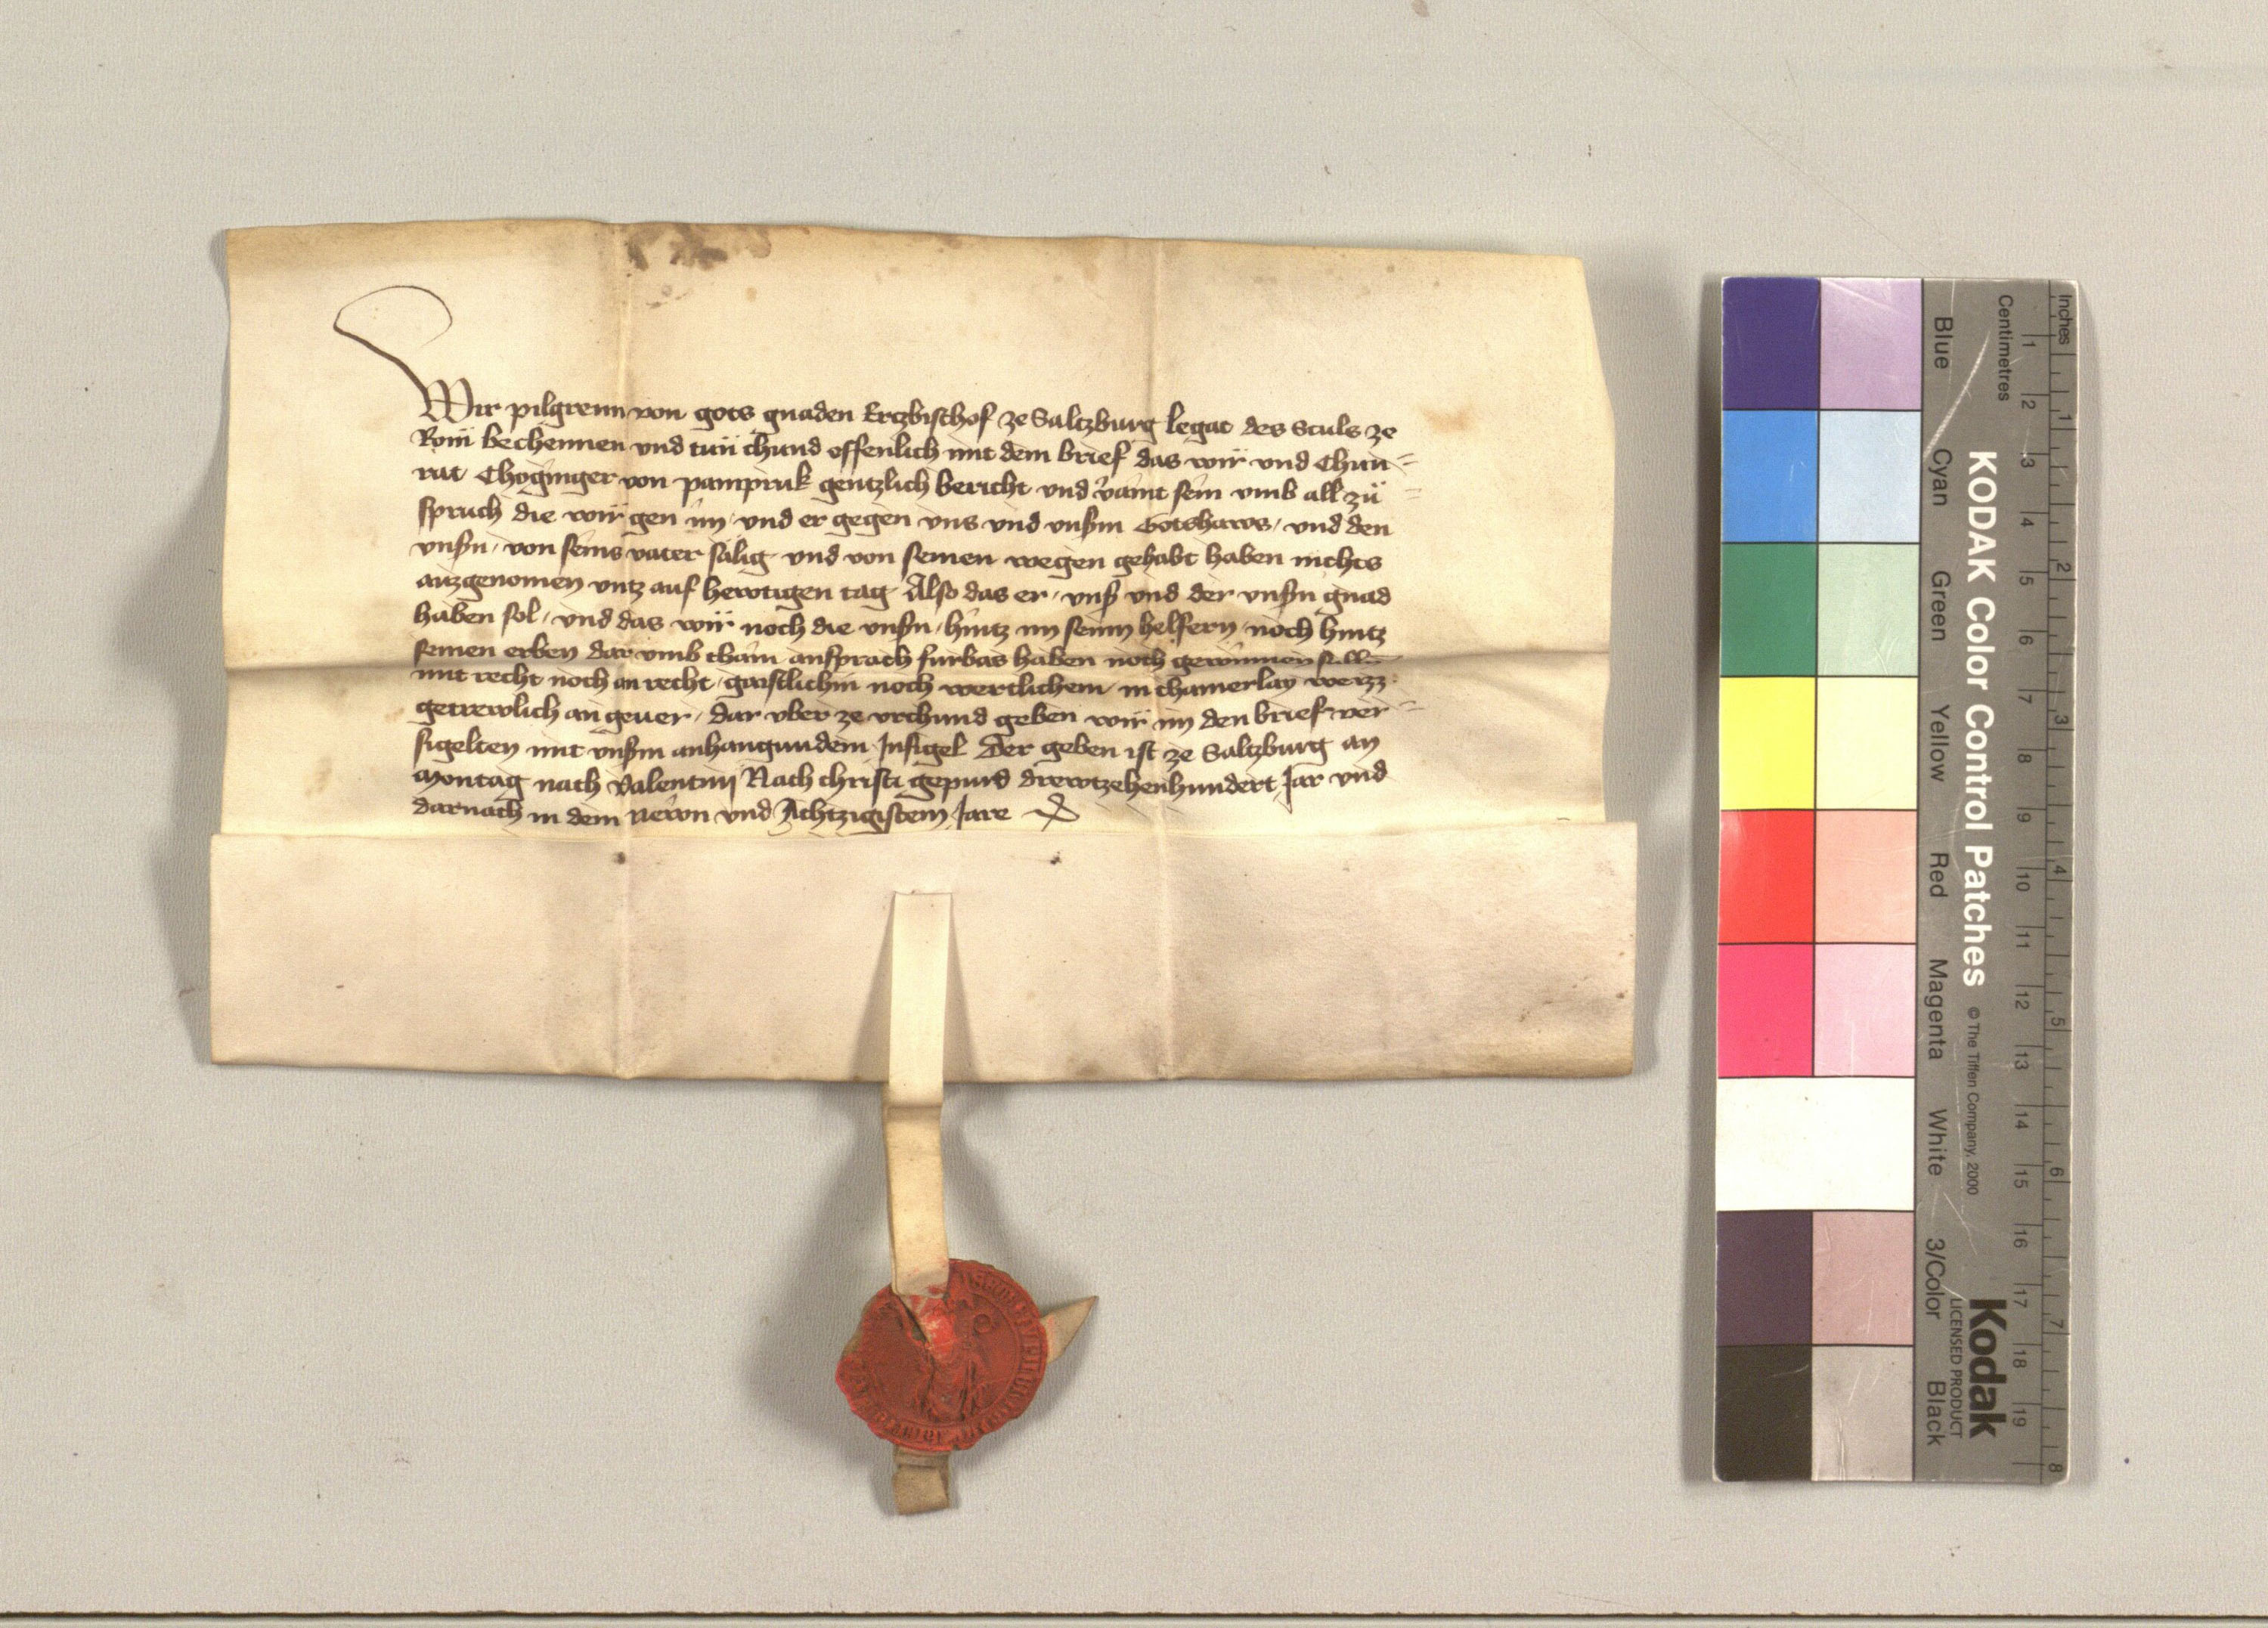 Wir pilgreim von gots gnaden Ertzbischof ze Saltzburg legat des Stuls ze
Rom bechennen und tun chund offenlich mit dem brief das wir und Chun=
rat Choginger von pampruk gentzlich bericht und veraint sein umb all zu=
spruch die wir gen im und er gegen uns und unserm Gotshaws, und den
unsern, von seins vater sälig und von seinen wegen gehabt haben nichts
auzgenomen untz auf hewtigen tag Also das er, unser und der unsern gnad
haben sol, und das wir noch die unsern, hintz im seinn helfern, noch hintz
seinen erben dar umb chain ansprach furbas haben noch gewinnen sullen
mit recht noch an recht, gaistlichem noch werltlichem, in chainerlay weizz
getrewlich an gever, Dar uber ze urchund geben wir im den brief ver=
sigelten mit unserm anhangundem Insigel Der geben ist ze Saltzburg an
Montag nach Valentini Nach christi gepurd drewtzehenhundert Jar und
darnach in dem newn und Achtzigistem Jare
KODAK Color Control Patches © The Tiffen Company, 2000
Kodak
LICENSED PRODUCT
Inches
Centimetres
Blue Cyan Green Yellow Red Magenta White 3/Color Black
1 2 3 4 5 6 7 8 9 10 11 12 13 14 15 16 17 18 19
1 2 3 4 5 6 7 8